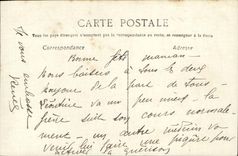 CARTE POSTALE
Tous les pays étrangers n'acceptent pas la correspondance au recto, se renseigner à la Poste
Correspondance Adresse
Bonne fête maman
Nous baisers à tous le deux
de la part de tous
va un peu mieux - la
fièvre suit son cours normale-
ment - un autre médecin va
venir lui faire une piqûre pour
guérison
Je vous embrasse